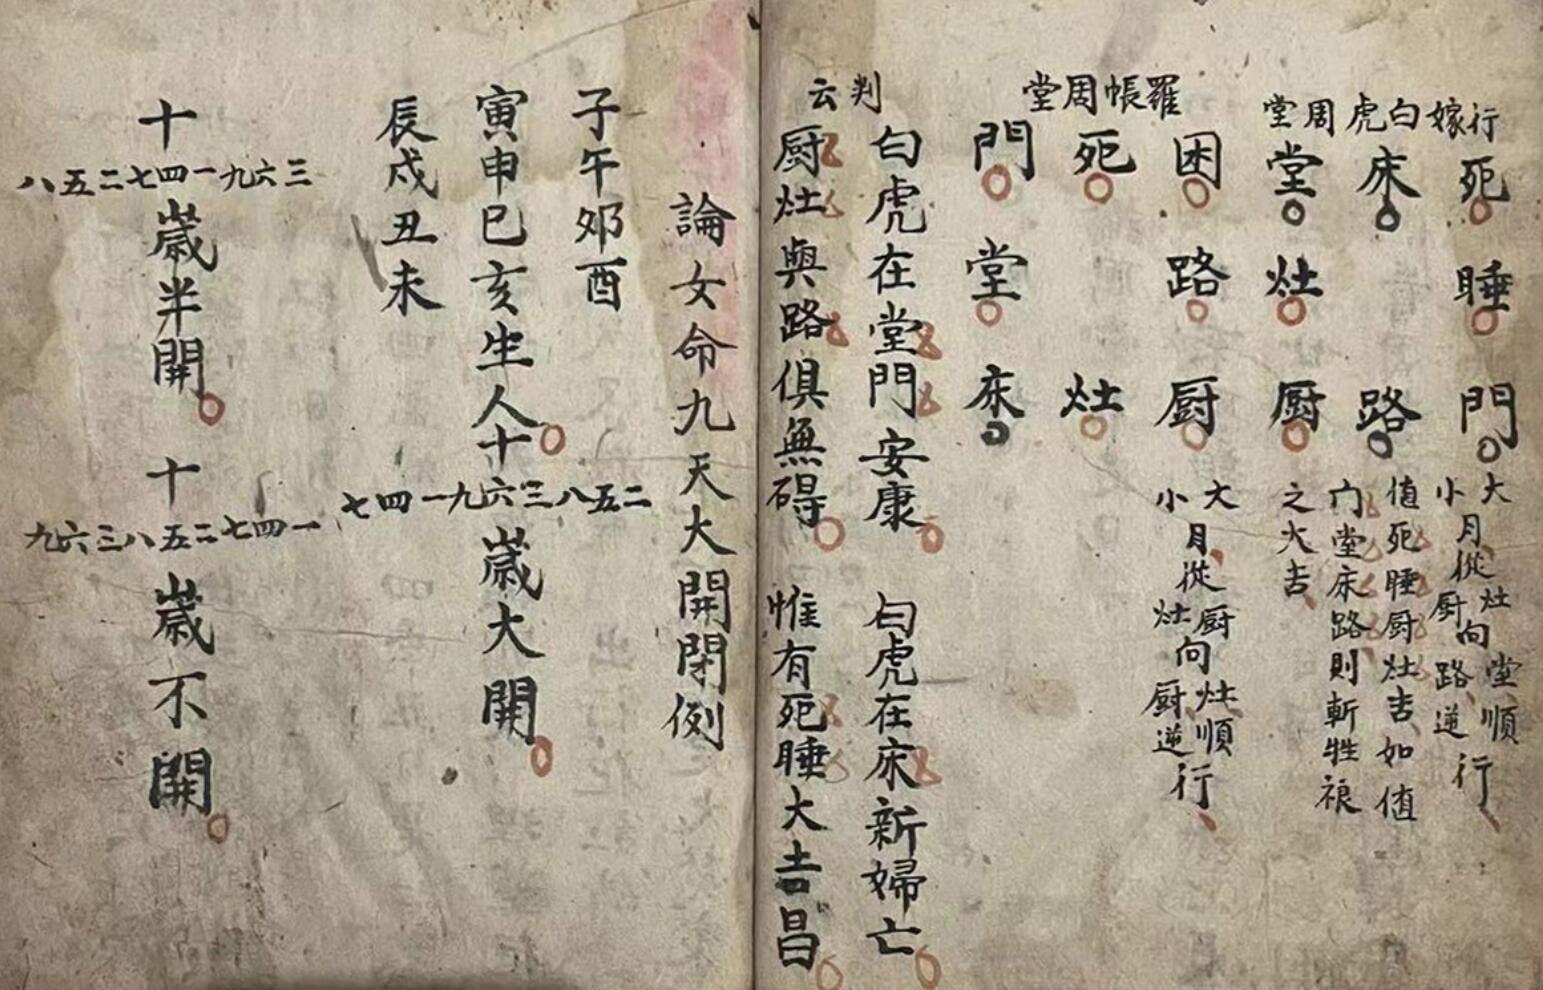 行嫁白虎周堂
死 睡 門
床 路
堂 灶 厨
大小月從灶厨向堂順路逆行、
值死睡厨灶吉、如值
门堂床路則斬牲禳
之大吉、
羅帳周堂
困 路 厨
死 灶
門 堂 床
大小月從厨灶向灶順厨逆行、
判云
白虎在堂門安康 白虎在床新婦亡
厨灶與路俱無碍 惟有死睡大吉昌
論女命九天大開閉例
子午夘酉
寅申巳亥生人十
辰戌丑未
二五八三六九一四七
歲大開
十
三六九一四七二五八
歲半開
十
一四七二五八三六九
歲不開